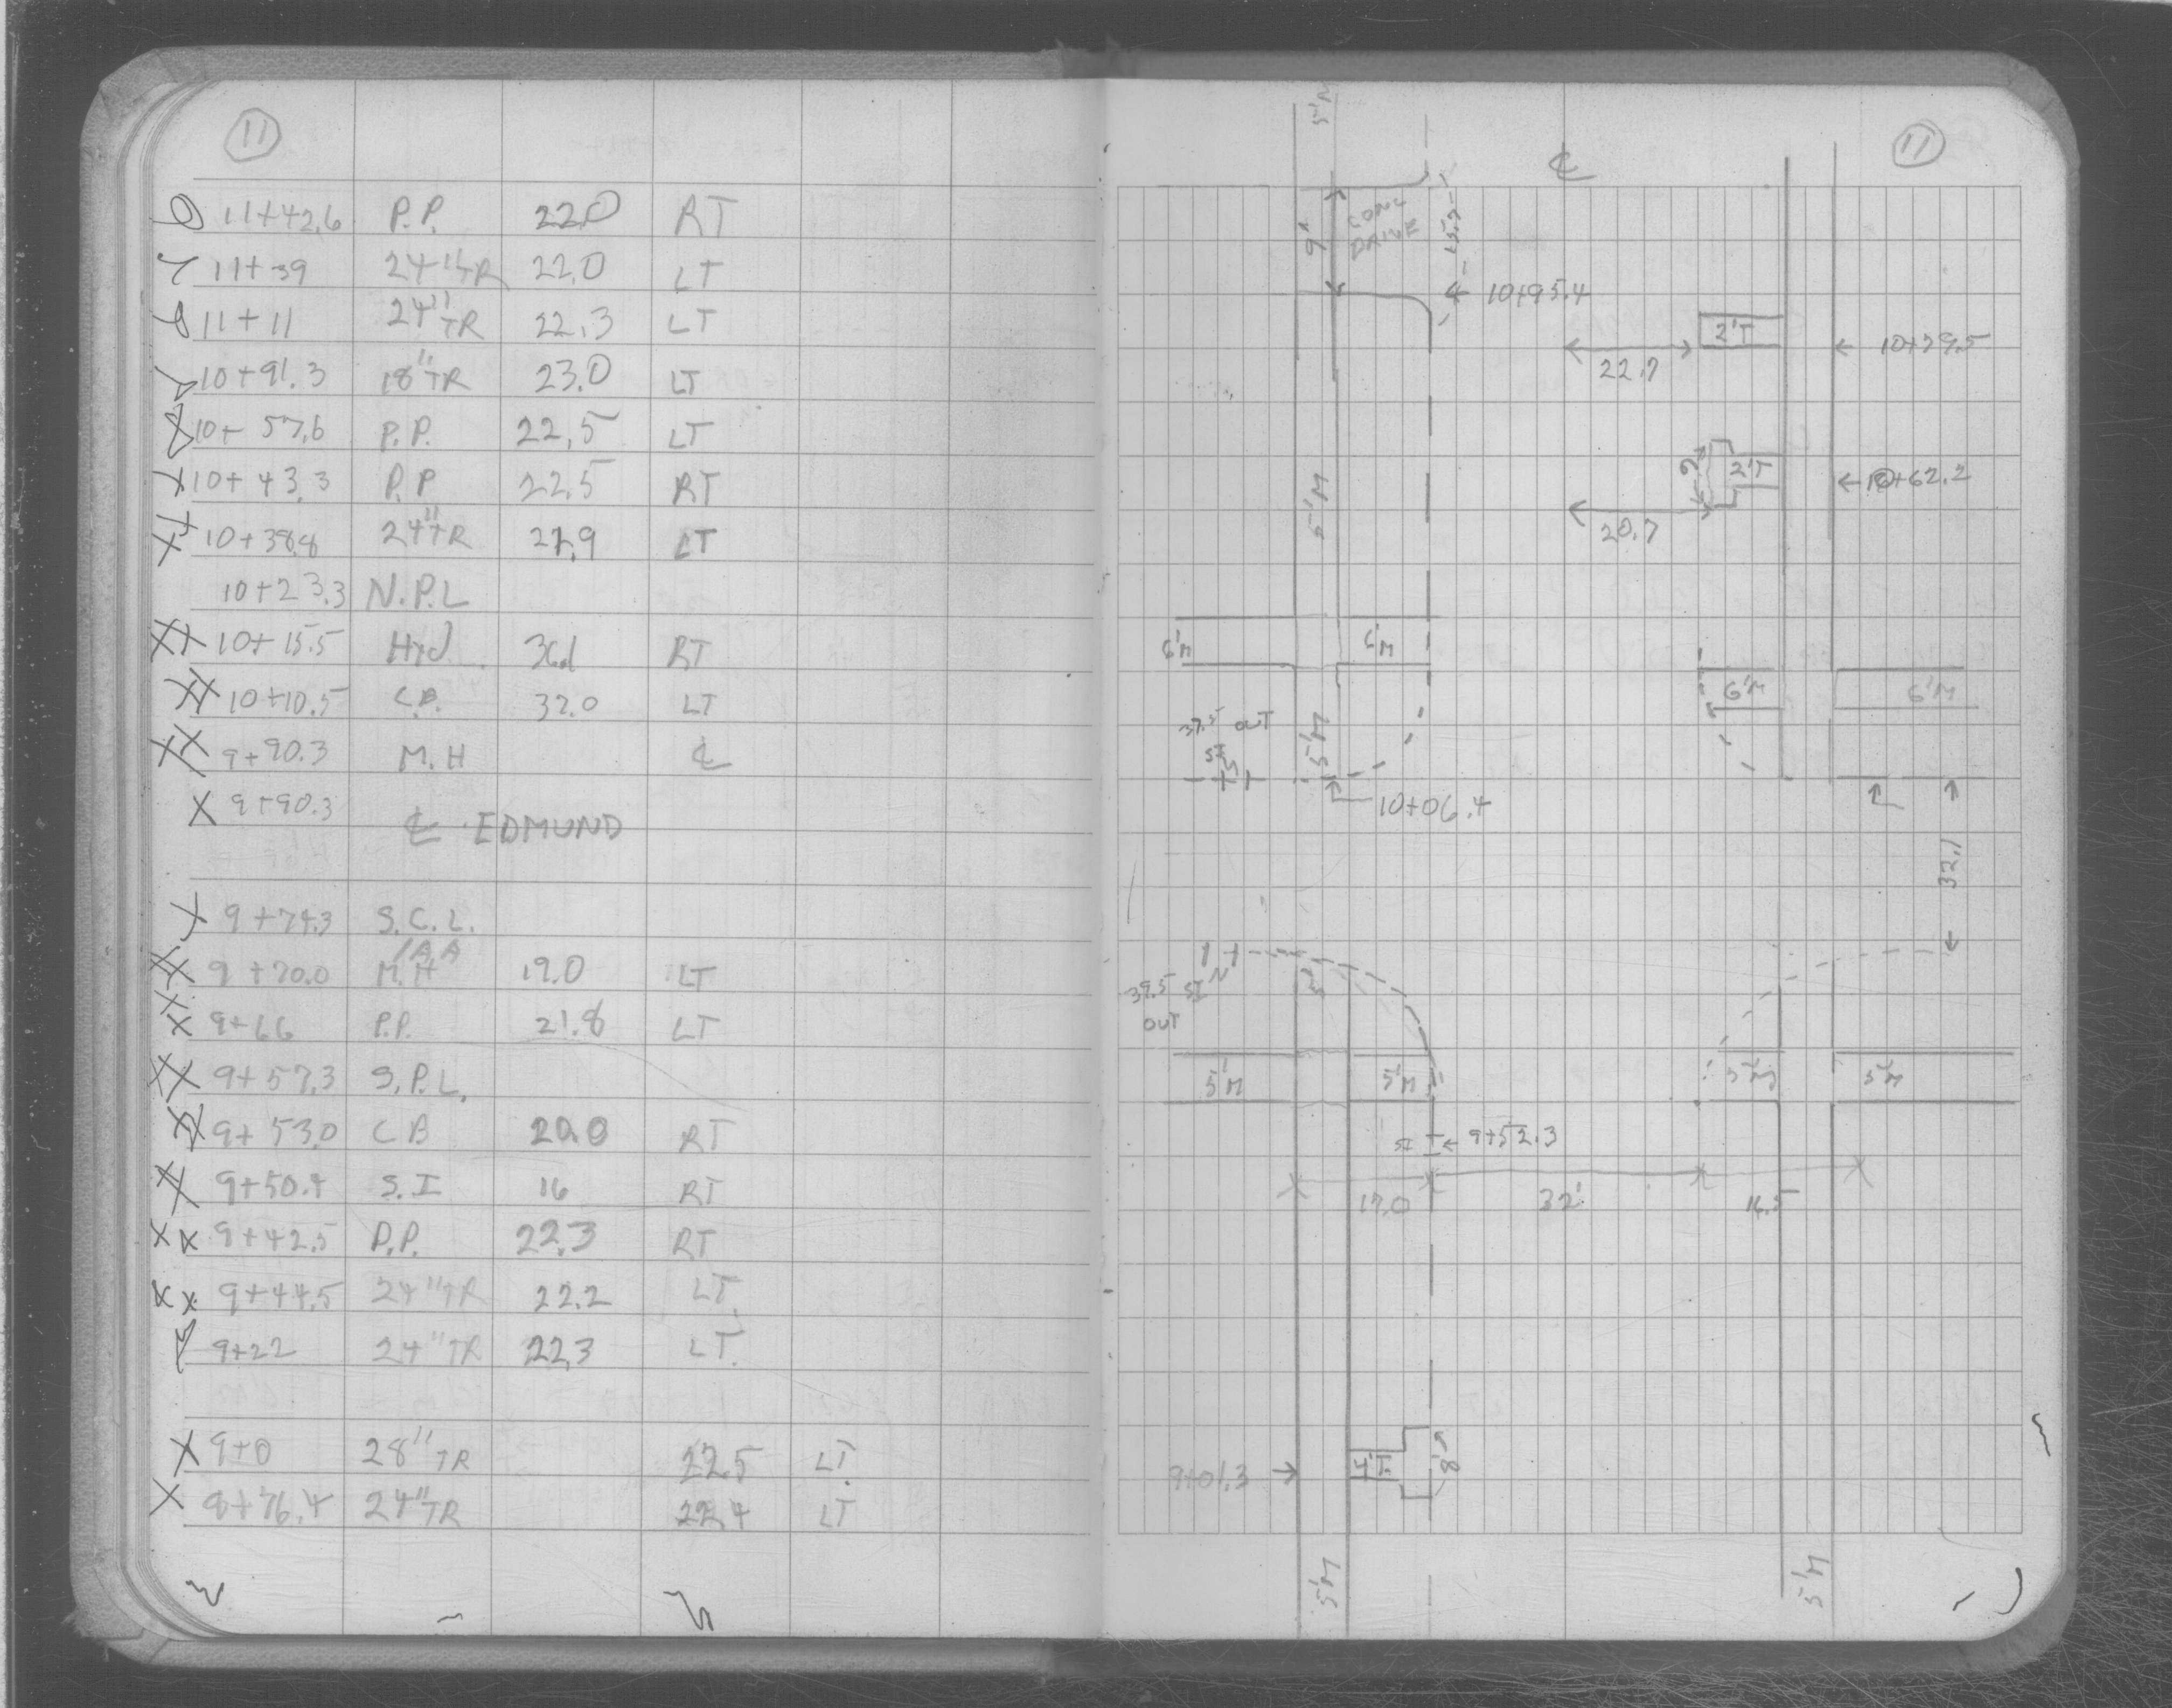 11
11+42.6 P.P. 22.0 RT
11+39 24"TR 22.0 LT
11+11 24"TR 22.3 LT
10+91.3 18"TR 23.0 LT
10+57.6 P.P. 22.5 LT
10+43.3 P.P. 22.5 RT
10+38.8 24"TR LT
10+23.3 N.P.L
10+15.5 Hyd RT
10+10.5 C.B. 32.0 LT
9+90.3 M.H ℄
9+90.3 ℄ EDMUND
9+74.3 S.C.L.
9+70.0 M.H 19.0 LT
9+66 P.P. 21.8 LT
9+57.3 S.P.L.
9+53.0 CB 20.0 RT
9+50.4 S.I 16 RT
9+42.5 P.P. 22.3 RT
9+44.5 24"TR 22.2 LT.
9+22 24"TR 22.3 LT.
9+0 28"TR 22.5 LT.
8+76.4 24"TR 22.4 LT
11
℄
5'M
9'
CONC
DRIVE
10+95.4
2'T
22.7
10+79.5
2'T
10+62.2
20.7
5'M
6'M
6'M
6'M
6'M
37.5 OUT
SI
5'M
10+06.4
32.1
39.5 SI
OUT
5'M
5'M
5'M
5'M
SI 9+52.3
17.0
32'
16.5
9+01.3
4'T.
8'
5'M
5'M